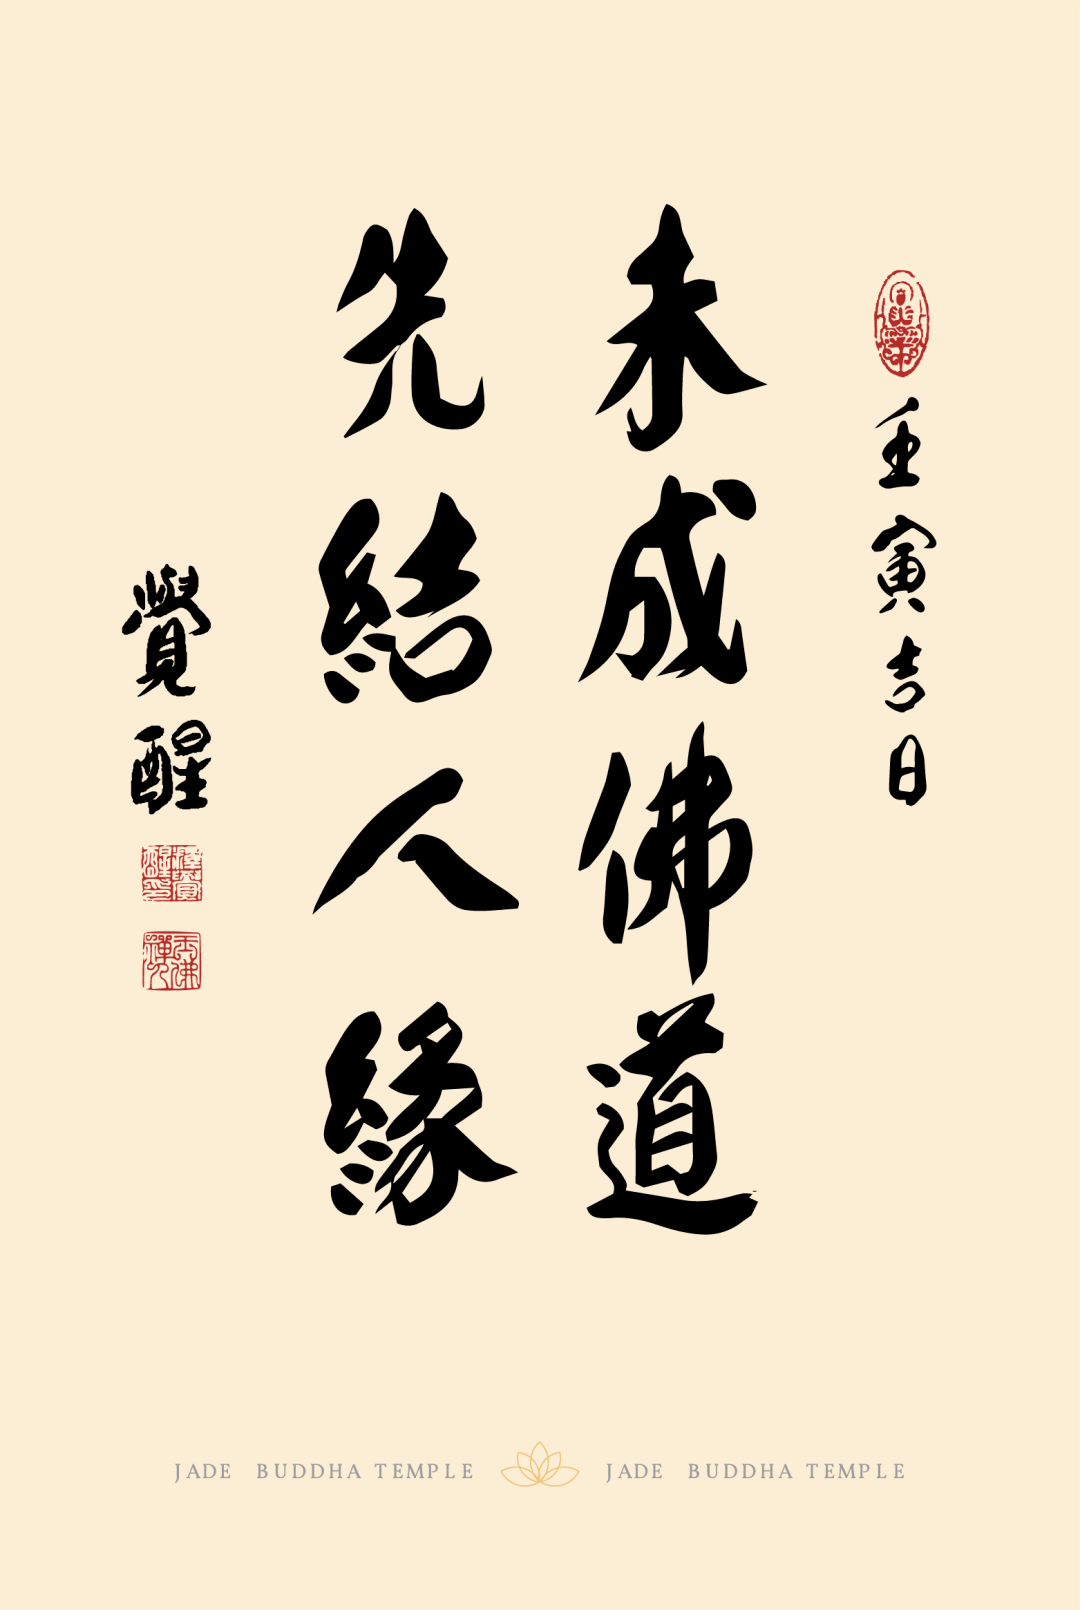 壬寅吉日
未成佛道
先結人緣
覺醒
JADE BUDDHA TEMPLE JADE BUDDHA TEMPLE